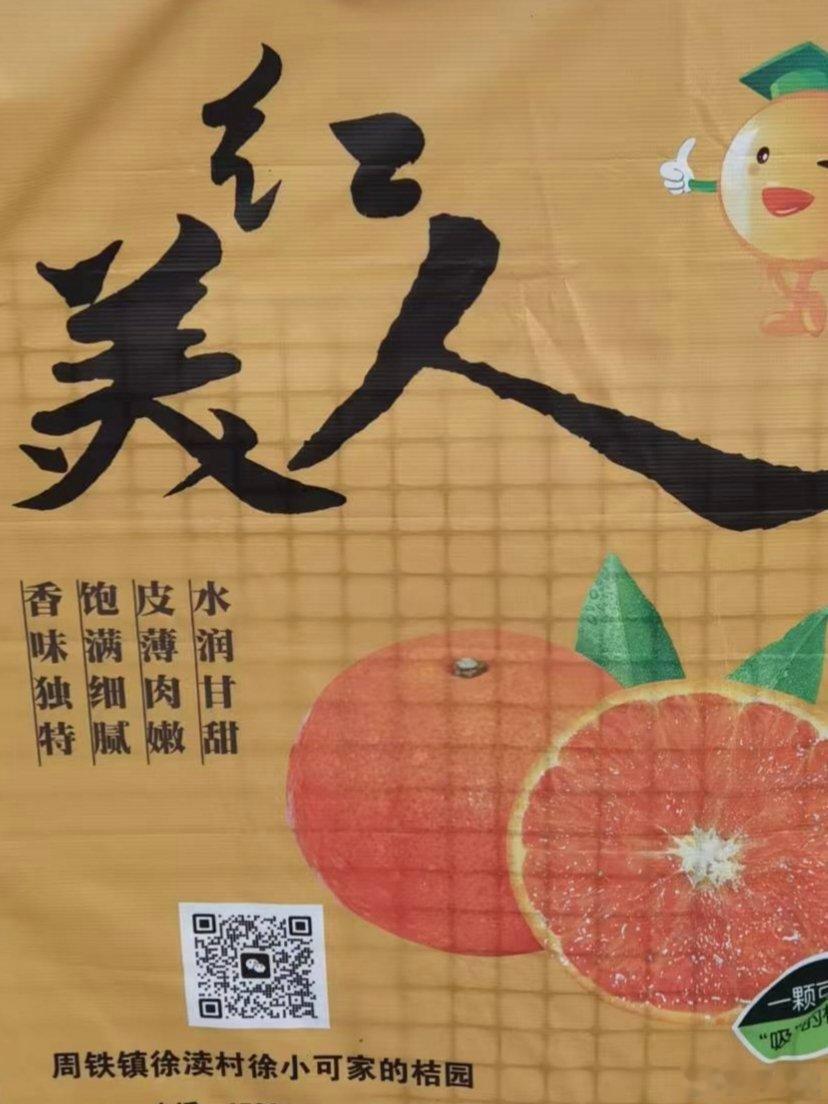 红
美人
水润甘甜
皮薄肉嫩
饱满细腻
香味独特
一颗
"吸"的
周铁镇徐渎村徐小可家的桔园